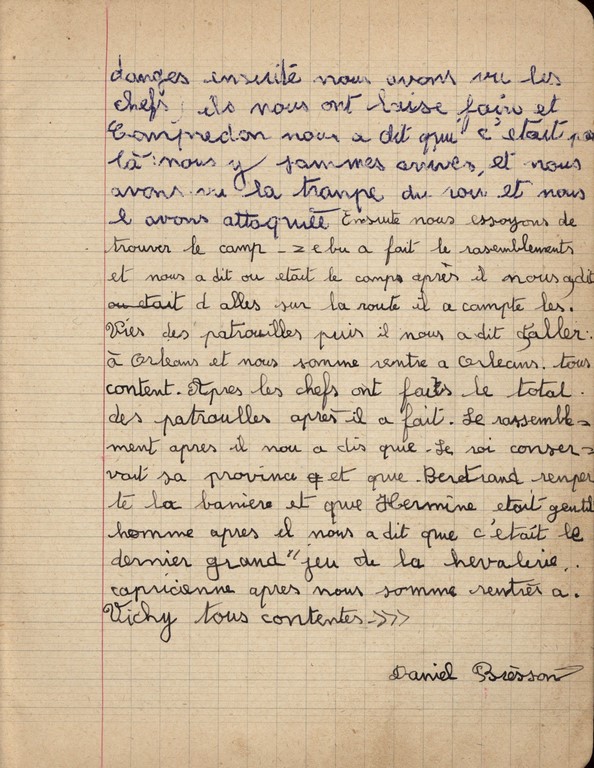 danges ensuite nous avons vu les
chefs, ils nous ont laisse faire et
Compredon nous a dit qui c'était pas
là nous y sommes arrives, et nous
avons vu la troupe du roi et nous
l avons attaquée Ensuite nous essoyons de
trouver le camp - zebu a fait le rasemblements
et nous a dit ou etait le camps après il nous a dit
d alles sur la route il a compte les.
Vies des patrouilles puis il nous a dit d'aller.
à Orleans et nous somme rentre a Orleans. tous
content. Apres les chefs ont faits le total.
des patroulles après il a fait. Le rassemble=
ment apres il nou a dis que. Le roi conser=
vait sa province et que. Bertrand remper
te la baniere et que Hermine etait gentil
homme apres il nous a dit que c'était le
dernier grand "jeu de la hevalerie.
capricienne apres nous somme rentrés a.
Vichy tous contentes->>>
Daniel Bresson